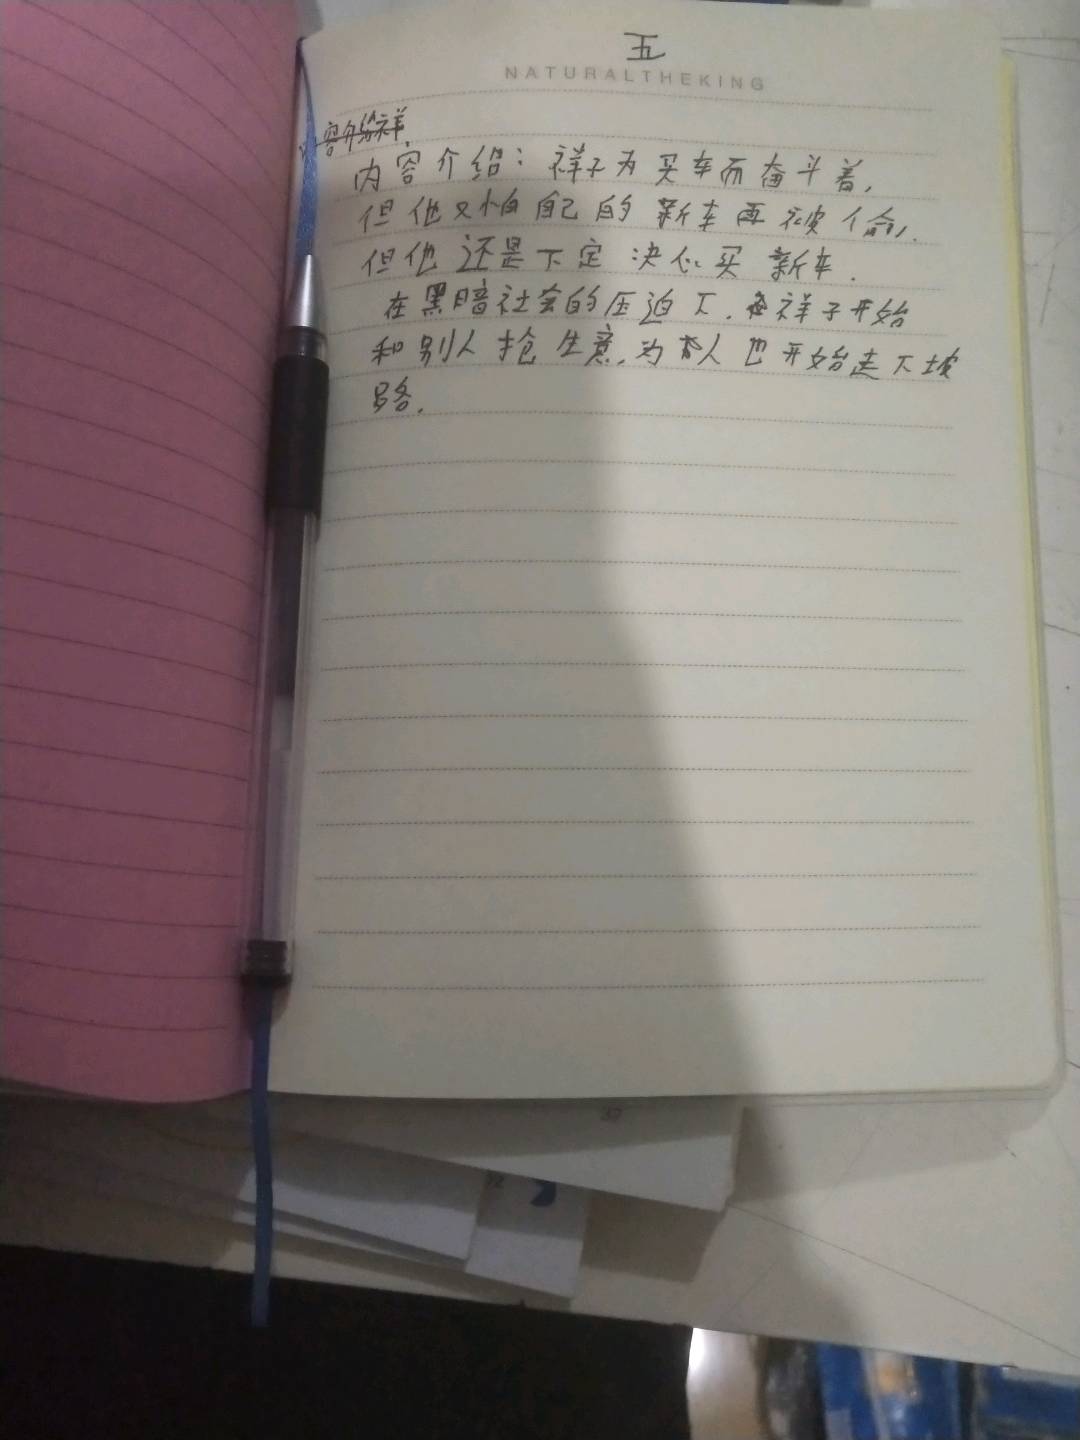 五
NATURALTHEKING
容介绍祥
内容介绍：祥子为买车而奋斗着，
但他又怕自己的新车再被偷，
但他还是下定决心买新车．
在黑暗社会的压迫下．祥子开始
和别人抢生意，为人也开始走下坡
路．
37